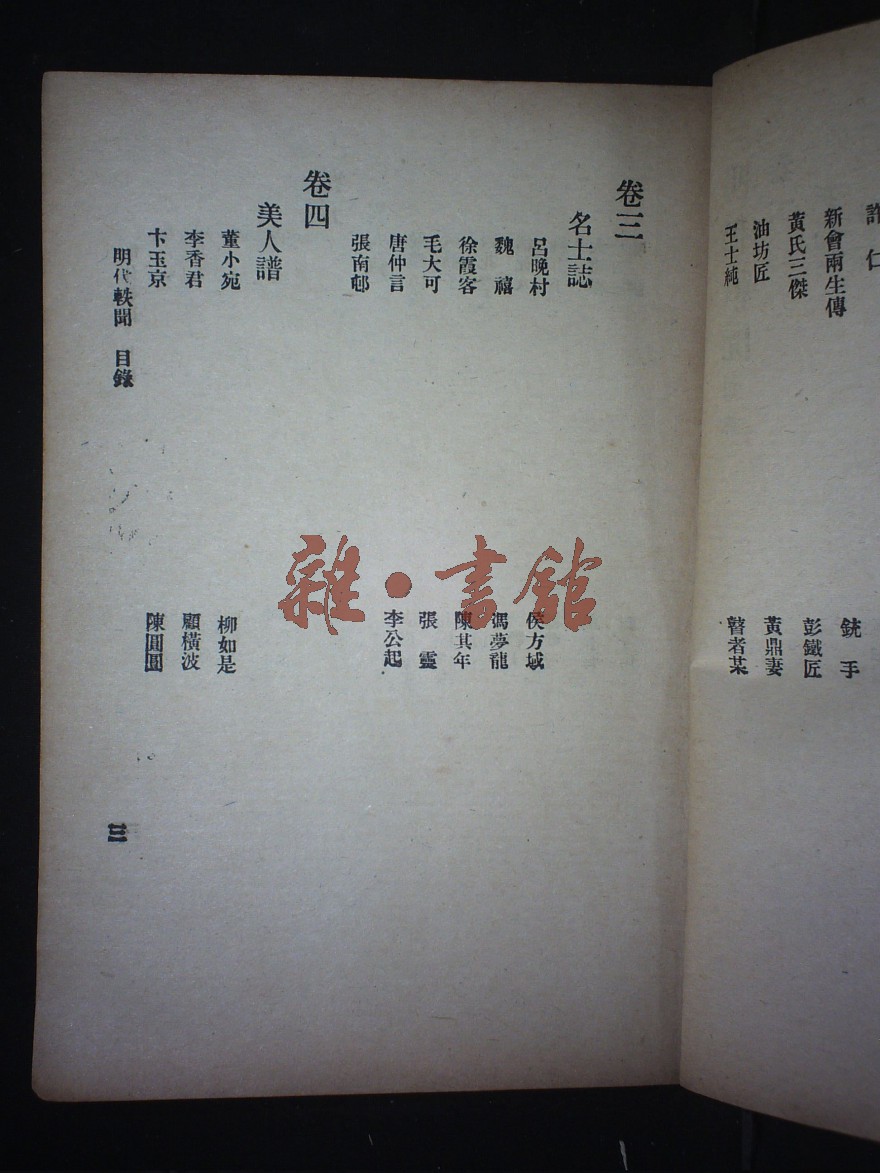 許仁
銃手
新會兩生傳
彭鐵匠
黃氏三傑
黃鼎妻
油坊匠
瞽者某
王士純
卷三
名士誌
呂晚村
侯方域
魏禧
馮夢龍
徐霞客
陳其年
毛大可
張靈
唐仲言
李公起
張南邨
卷四
美人譜
董小宛
柳如是
李香君
顧橫波
卞玉京
陳圓圓
明代軼聞 目錄
三
雜•書館